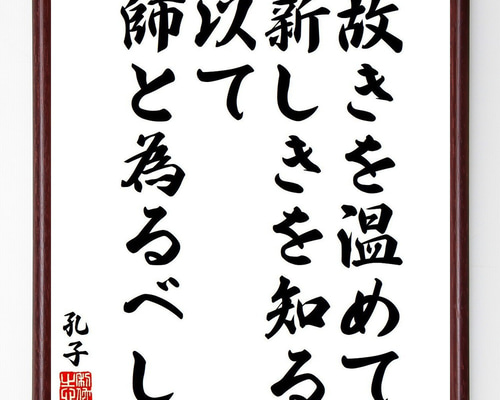 故きを温めて
新しきを知る
以て
師と為るべし
孔子